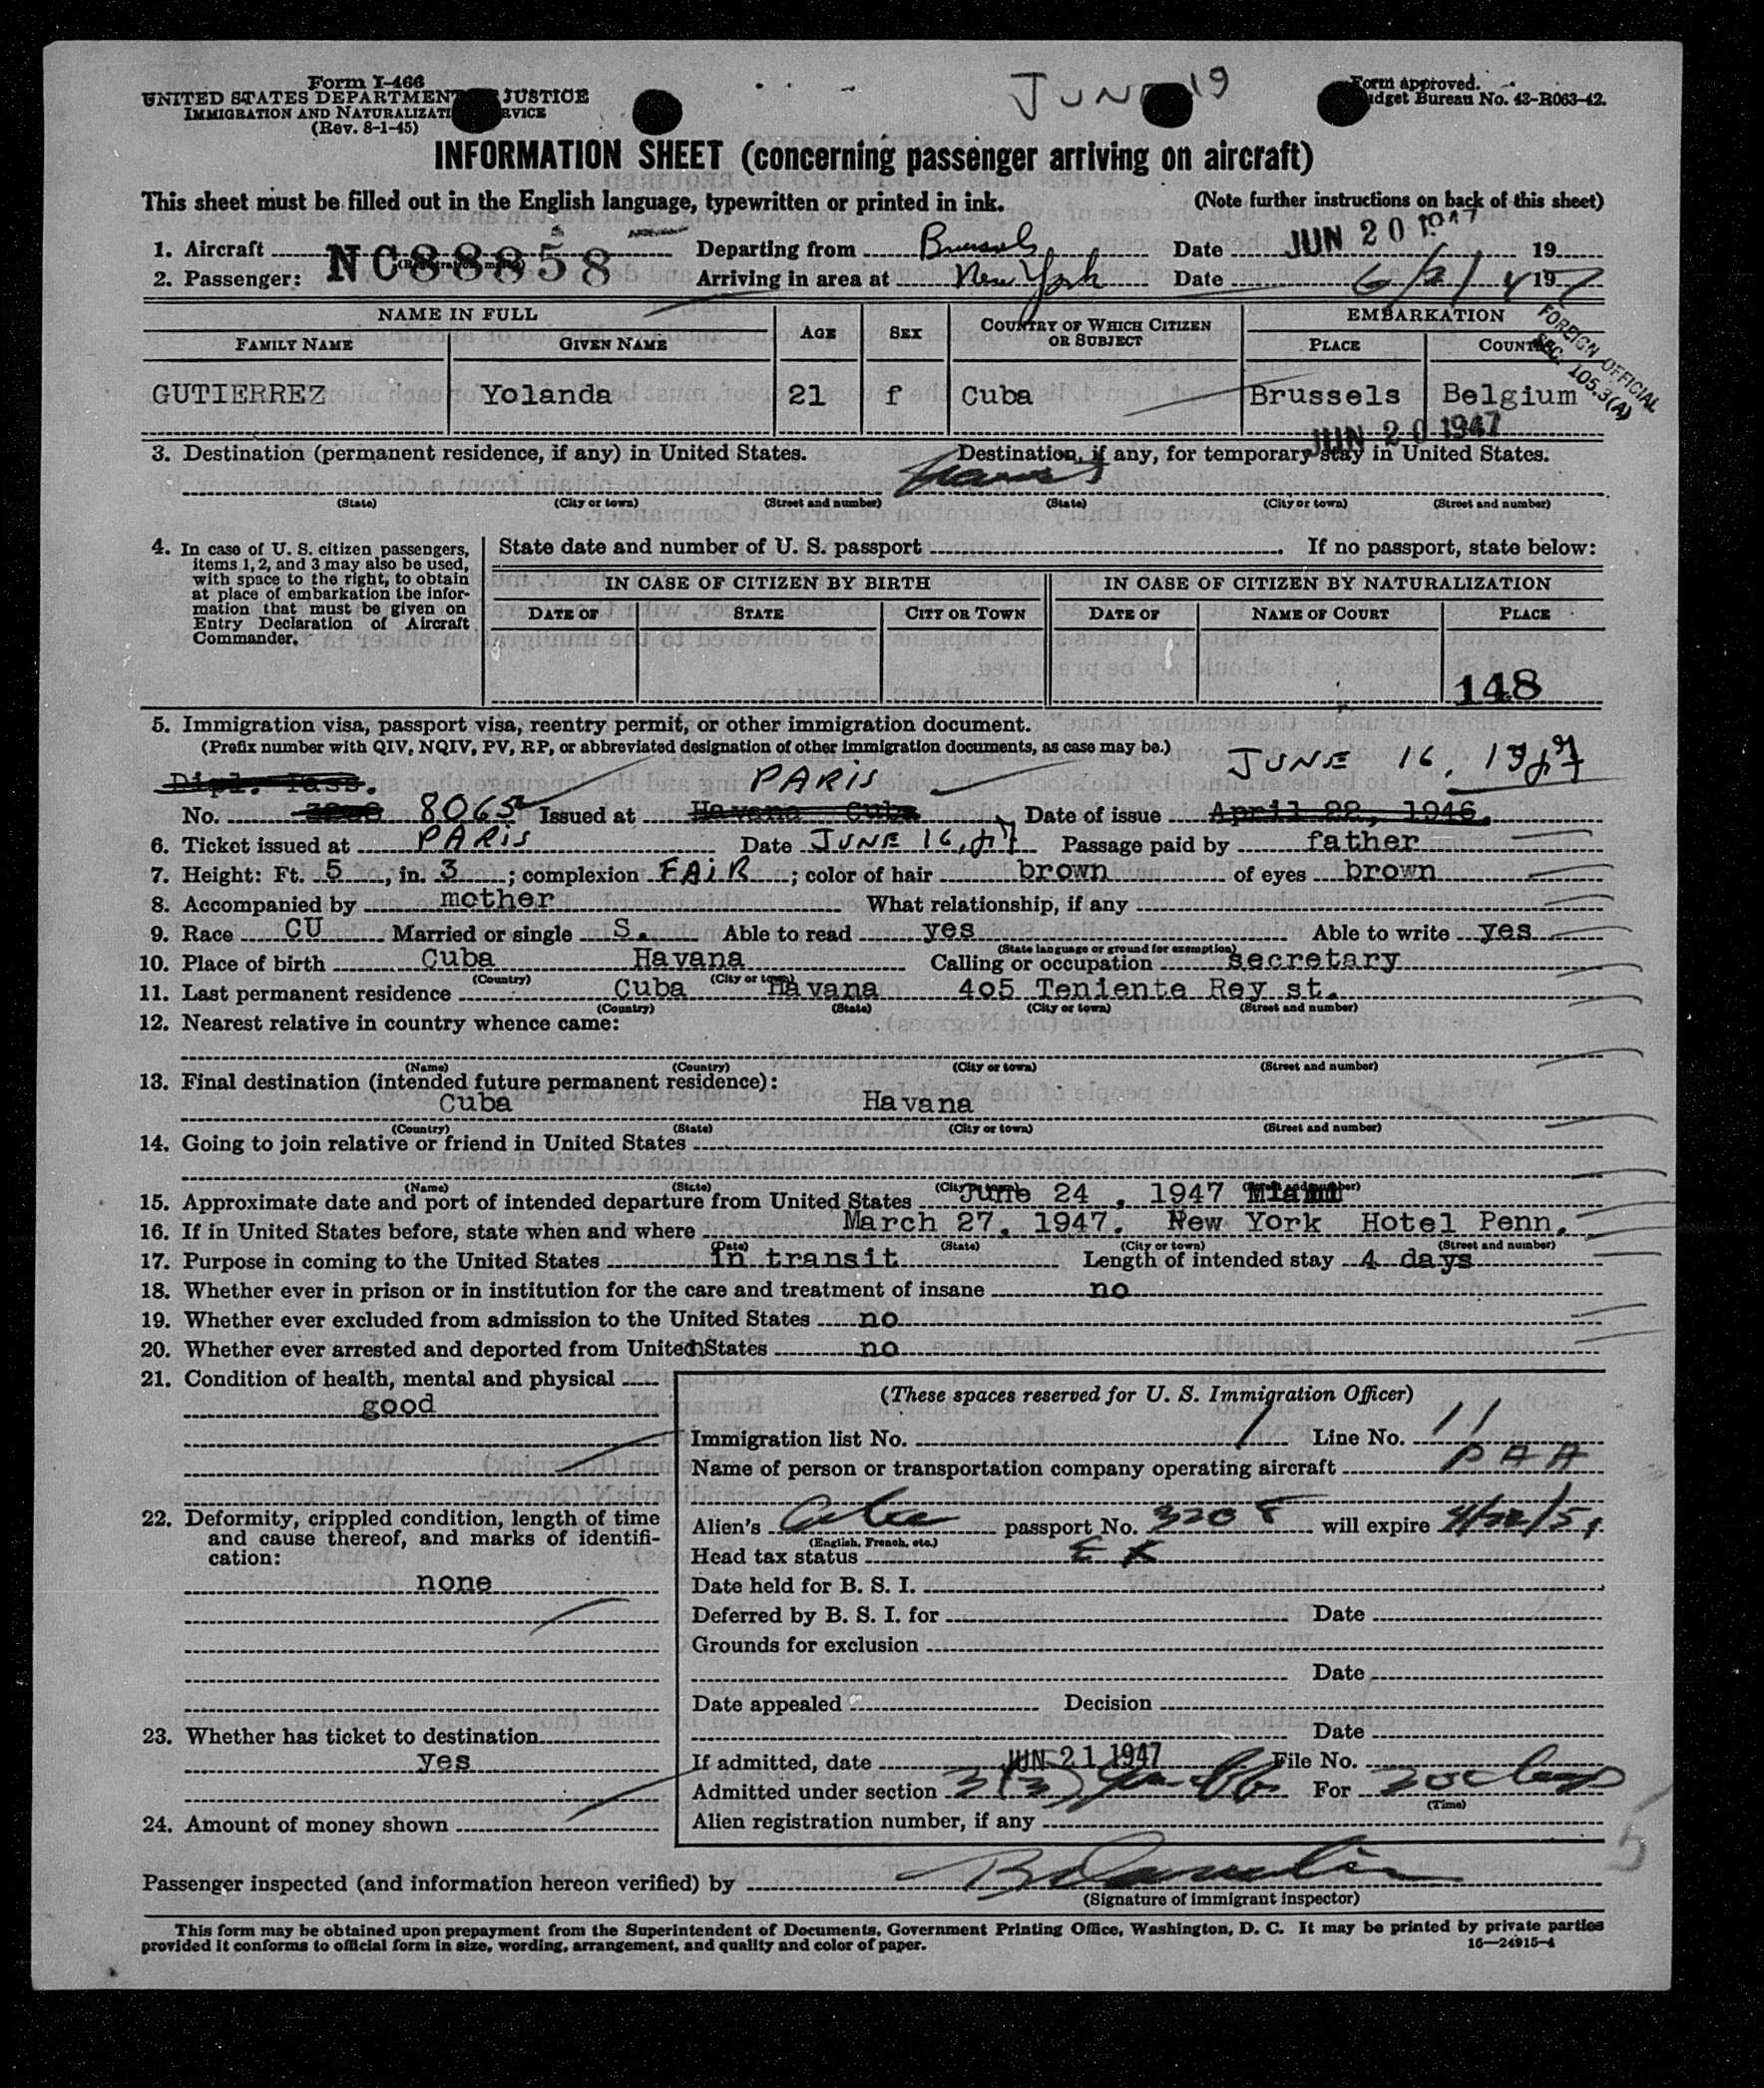 Form I-466
UNITED STATES DEPARTMENT JUSTICE
IMMIGRATION AND NATURALIZATI RVICE
(Rev. 8-1-45)
JUNE 19
Form approved.
dget Bureau No. 43-R063-42.
INFORMATION SHEET (concerning passenger arriving on aircraft)
This sheet must be filled out in the English language, typewritten or printed in ink. (Note further instructions on back of this sheet)
1. Aircraft NC88858 Departing from Brussels Date JUN 20 1947 19
2. Passenger: Arriving in area at New York Date 6/21/47 19
NAME IN FULL AGE SEX COUNTRY OF WHICH CITIZEN OR SUBJECT EMBARKATION
FAMILY NAME GIVEN NAME PLACE COUNT
FOREIGN OFFICIAL
SEC. 105.3(A)
GUTIERREZ Yolanda 21 f Cuba Brussels Belgium
JUN 20 1947
3. Destination (permanent residence, if any) in United States. Destination, if any, for temporary stay in United States.
(State) (City or town) (Street and number) (State) (City or town) (Street and number)
4. In case of U. S. citizen passengers, items 1, 2, and 3 may also be used, with space to the right, to obtain at place of embarkation the information that must be given on Entry Declaration of Aircraft Commander.
State date and number of U. S. passport . If no passport, state below:
IN CASE OF CITIZEN BY BIRTH IN CASE OF CITIZEN BY NATURALIZATION
DATE OF STATE CITY OR TOWN DATE OF NAME OF COURT PLACE
148
5. Immigration visa, passport visa, reentry permit, or other immigration document.
(Prefix number with QIV, NQIV, PV, RP, or abbreviated designation of other immigration documents, as case may be.)
Dipl. Pass. PARIS JUNE 16, 1947
No. 8065 Issued at Havana Cuba Date of issue April 22, 1946
6. Ticket issued at PARIS Date JUNE 16, 47 Passage paid by father
7. Height: Ft. 5, in. 3; complexion FAIR; color of hair brown of eyes brown
8. Accompanied by mother What relationship, if any
9. Race CU Married or single S. Able to read yes Able to write yes
(State language or ground for exemption)
10. Place of birth Cuba Havana Calling or occupation secretary
(Country) (City or town)
11. Last permanent residence Cuba Havana 405 Teniente Rey st.
(Country) (State) (City or town) (Street and number)
12. Nearest relative in country whence came:
(Name) (Country) (City or town) (Street and number)
13. Final destination (intended future permanent residence):
Cuba Havana
(Country) (State) (City or town) (Street and number)
14. Going to join relative or friend in United States
(Name) (State)
15. Approximate date and port of intended departure from United States June 24, 1947 Miami
16. If in United States before, state when and where March 27, 1947. New York Hotel Penn.
(Date) (State) (City or town) (Street and number)
17. Purpose in coming to the United States in transit Length of intended stay 4 days
18. Whether ever in prison or in institution for the care and treatment of insane no
19. Whether ever excluded from admission to the United States no
20. Whether ever arrested and deported from United States no
21. Condition of health, mental and physical
good
(These spaces reserved for U. S. Immigration Officer)
Immigration list No. 1 Line No. 11
Name of person or transportation company operating aircraft PAA
22. Deformity, crippled condition, length of time and cause thereof, and marks of identification:
none
Alien's passport No. 3208 will expire 4/22/51
(English, French, etc.)
Head tax status EX
Date held for B. S. I.
Deferred by B. S. I. for Date
Grounds for exclusion
Date
Date appealed Decision
Date
23. Whether has ticket to destination
yes
If admitted, date JUN 21 1947 File No.
Admitted under section 3(3) For
(Time)
24. Amount of money shown
Alien registration number, if any
Passenger inspected (and information hereon verified) by
(Signature of immigrant inspector)
This form may be obtained upon prepayment from the Superintendent of Documents, Government Printing Office, Washington, D. C. It may be printed by private parties
provided it conforms to official form in size, wording, arrangement, and quality and color of paper. 16—24915-4